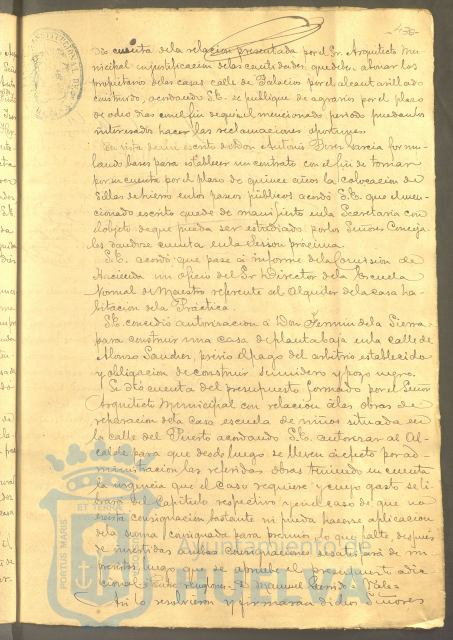 dó cuenta de la relacion presentada por el Sr. Arquitecto Mu-
nicipal en justificacion de las cantidades que deben abonar los
propietarios de las casas calle de Palacios por el alcantarillado
construido, acordando S.E. se publique de agravios por el plazo
de ocho dias con el fin de que en el mencionado periodo puedan los
interesados hacer las reclamaciones oportunas.
En vista de un escrito de Don Antonio Garcia for mu-
lando bases para establecer un contrato con el fin de tomar
por su cuenta por el plazo de quince años la colocacion de
sillas de hierro en los paseos públicos acordó S.E. que el men-
cionado escrito quede de manifiesto en la Secretaria con
objeto de que pueda ser estudiado por los Señores Conceja-
les dandose cuenta en la sesion próxima.
S.E. acordó que pase á informe de la Comision de
Hacienda un oficio del Sr. Director de la Escuela
Normal de Maestros referente al alquiler de la casa ha-
bitacion de la Práctica.
S.E. concedió autorizacion á Don Fermin de la Sierra
para construir una casa de planta baja en la calle de
Alonso Sanchez, previo el pago del arbitrio establecido
y obligacion de construir sumidero y pozo negro.
Se dió cuenta del presupuesto formado por el Señor
Arquitecto Municipal con relacion á las obras de
reparacion de la casa escuela de niños situada en
la calle del Puerto acordando S.E. autorizar al Al-
calde para que desde luego se lleven á efecto por ad-
ministracion las referidas obras teniendo en cuenta
la urgencia que el caso requiere y cuyo gasto se li-
brará del Capítulo respectivo y en el caso de que no
exista consignacion bastante ni pueda hacerse aplicacion
de la suma consignada para premios lo que falte despues
de invertidas ambas consignaciones se datará de im-
previstos luego que se apruebe el presupuesto adi-
cional. Manuel Garrido = Vale =
Así lo resolvieron y firmaran dichos Señores
ET TERRÆ
PORTUS MARIS
Ayuntamiento de
HUELVA